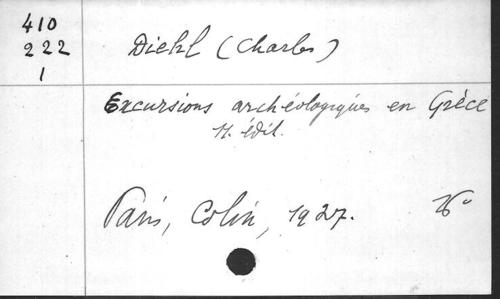 410
222
1
Diehl (Charles)
Excursions archéologiques en Grèce
11. édit.
Paris, Colin, 1927.